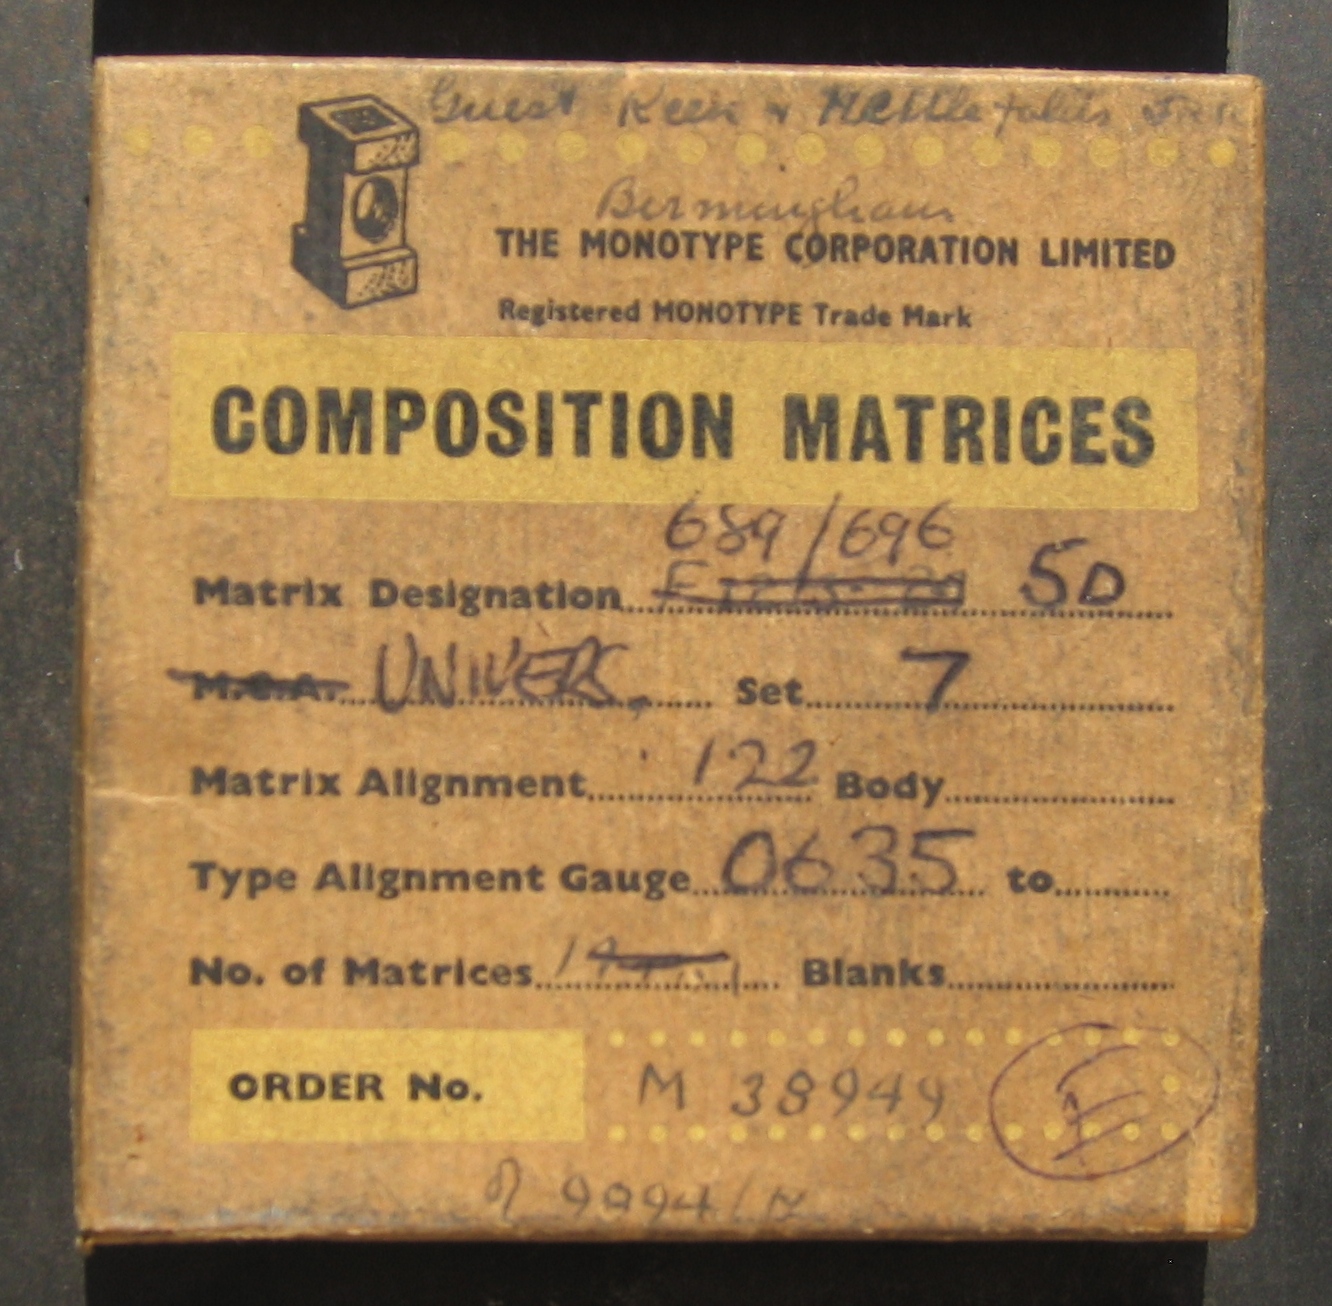 Guest Keen & Nettlefolds
Bermingham
THE MONOTYPE CORPORATION LIMITED
Registered MONOTYPE Trade Mark
COMPOSITION MATRICES
689/696
Matrix Designation 5D
M.C.A. UNIVERS. Set 7
Matrix Alignment 122 Body
Type Alignment Gauge 0635 to
No. of Matrices Blanks
ORDER No. M 38949
9994/N